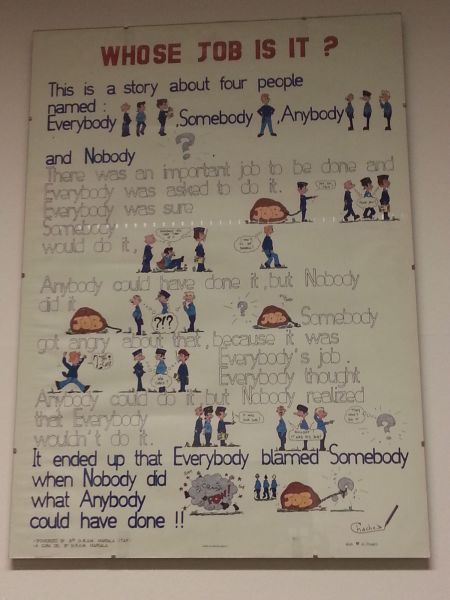 WHOSE JOB IS IT ?
This is a story about four people
named :
Everybody , Somebody , Anybody
and Nobody
There was an important job to be done and
Everybody was asked to do it.
Everybody was sure
JOB
Somebody
would do it,
Anybody could have done it, but Nobody
did it
JOB
?!?
JOB
Somebody
got angry about that, because it was
Everybody's job.
Everybody thought
Anybody could do it, but Nobody realized
that Everybody
wouldn't do it.
It ended up that Everybody blamed Somebody
when Nobody did
what Anybody
JOB
could have done !!